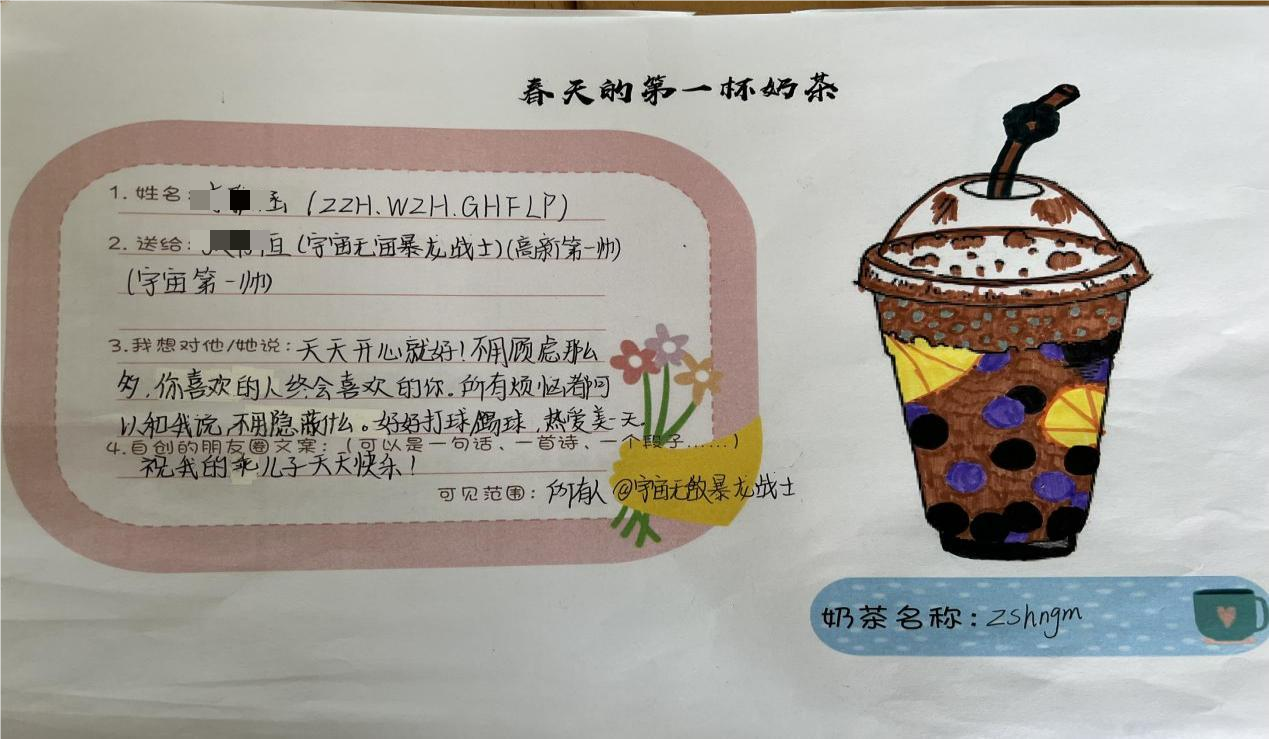 春天的第一杯奶茶
1. 姓名: (ZZH.WZH.GHFLP)
2. 送给: (宇宙无宙暴龙战士)(高新第一帅)
(宇宙第一帅)
3.我想对他/她说: 天天开心就好!不用顾虑那么
多,你喜欢的人终会喜欢的你。所有烦恼都可
以和我说,不用隐蔽什么。好好打球踢球,热爱美一天。
4.自创的朋友圈文案:(可以是一句话、一首诗、一个段子……)
祝我的乖儿子天天快乐!
可见范围: 所有人 @宇宙无敌暴龙战士
奶茶名称: zshngm